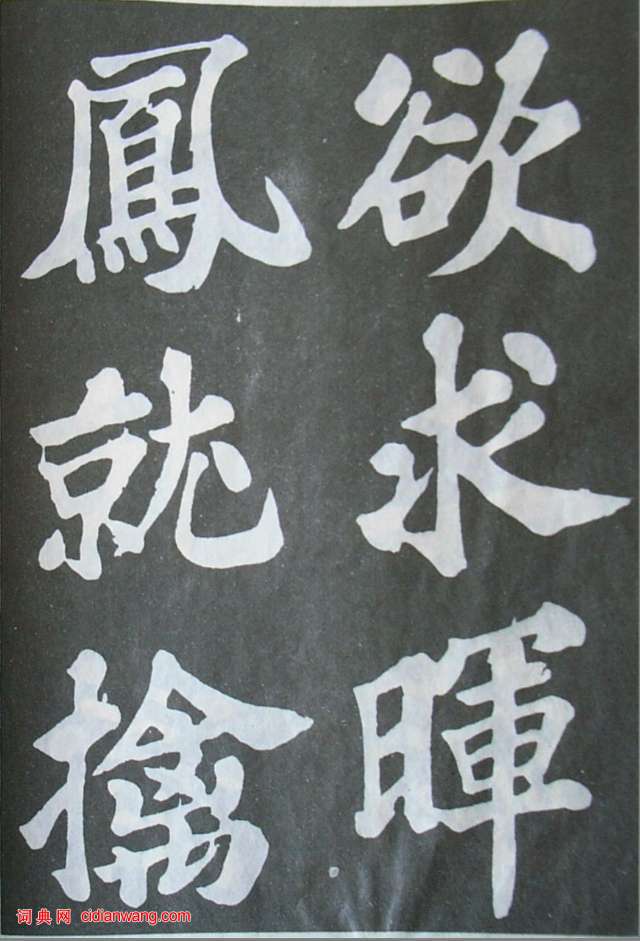 欲求暉
鳳就擒
词典网 cidianwang.com